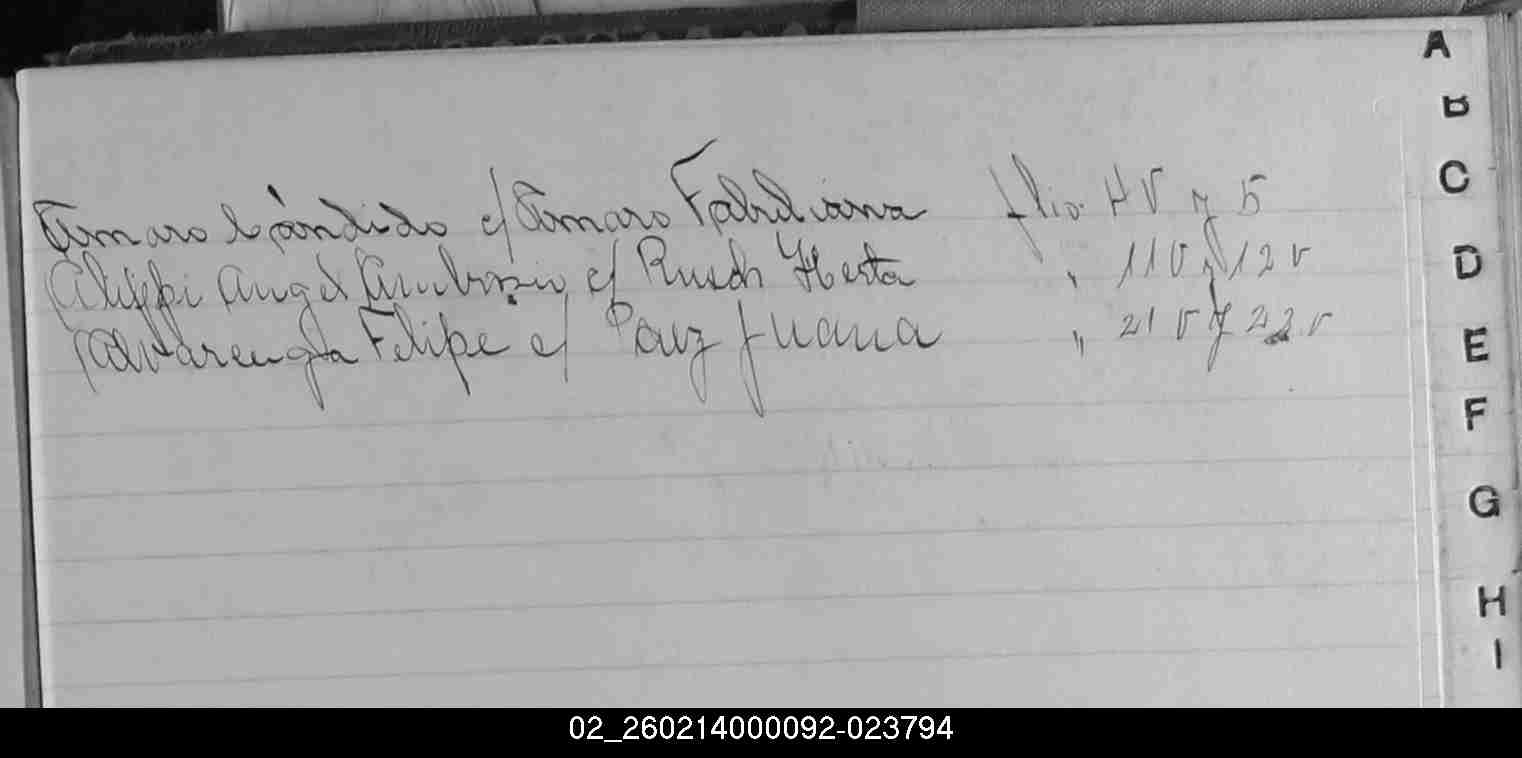 Amaro Cándido c/ Amaro Fabiliana folio 4 v y 5
Aleppi Angel Ambrosio c/ Rusch Herta " 11 v y 12 v
Alvarenga Felipe c/ Paiz Juana " 21 v y 22 v
A
B
C
D
E
F
G
H
I
02_260214000092-023794